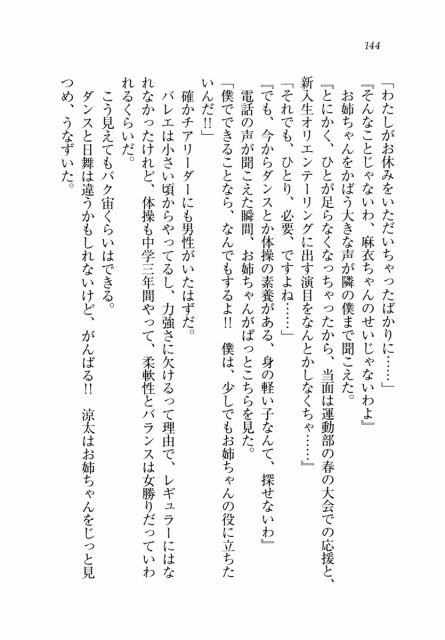 144
「わたしがお休みをいただいちゃったばかりに……」
『そんなことじゃないわ、麻衣ちゃんのせいじゃないわよ』
お姉ちゃんをかばう大きな声が隣の僕まで聞こえた。
『とにかく、ひとが足らなくなっちゃったから、当面は運動部の春の大会での応援と、
新入生オリエンテーリングに出す演目をなんとかしなくちゃ……』
「それでも、ひとり、必要、ですよね……」
『でも、今からダンスとか体操の素養がある、身の軽い子なんて、探せないわ』
電話の声が聞こえた瞬間、お姉ちゃんがぱっとこちらを見た。
「僕でできることなら、なんでもするよ!! 僕は、少しでもお姉ちゃんの役に立ちた
いんだ!!」
確かチアリーダーにも男性がいたはずだ。
バレエは小さい頃からやってるし、力強さに欠けるって理由で、レギュラーにはな
れなかったけれど、体操も中学三年間やって、柔軟性とバランスは女勝りだっていわ
れるくらいだ。
こう見えてもバク宙くらいはできる。
ダンスと日舞は違うかもしれないけど、がんばる!! 涼太はお姉ちゃんをじっと見
つめ、うなずいた。